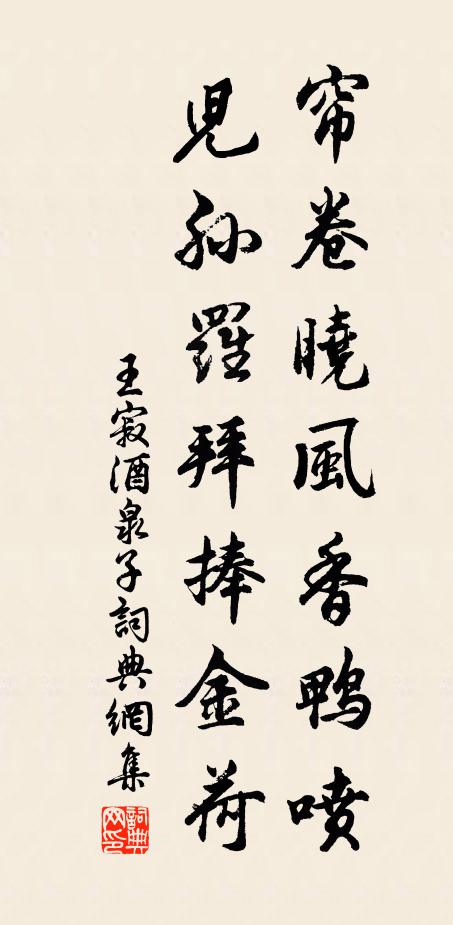 帘卷曉風香鴨噴
兒孫羅拜捧金荷
王寂酒泉子詞典網集
詞典网印